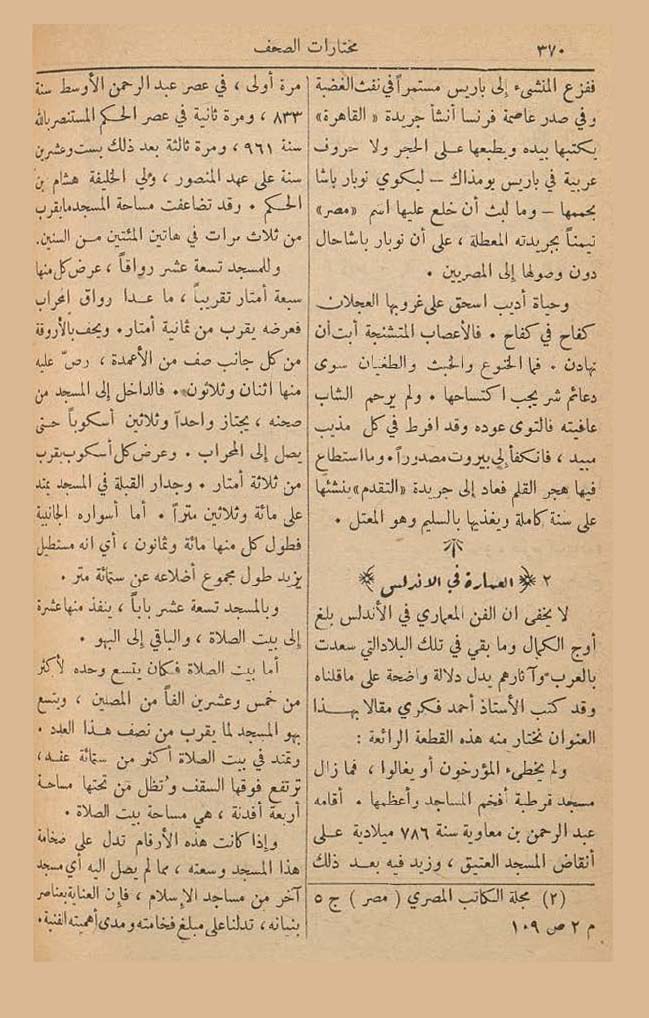 ٣٧٠
مختارات الصحف
ففزع المنشىء إلى باريس مستمراً في نفث الغضبة
وفي صدر عاصمة فرنسا أنشأ جريدة « القاهرة »
يكتبها بيده ويطبعها على الحجر ولا حروف
عربية في باريس يومذاك – ليكوي نوبار باشا
بحممها – وما لبث أن خلع عليها اسم « مصر »
تيمناً بجريدته المعطلة ، على أن نوبار باشا حال
دون وصولها إلى المصريين .
وحياة أديب اسحق على غروبها العجلان
كفاح في كفاح . فالأعصاب المتشنجة أبت أن
تهادن . فما الخنوع والخبث والطغيان سوى
دعائم شر يجب اكتساحها . ولم يرحم الشاب
عافيته فالتوى عوده وقد افرط في كل مذيب
مبيد ، فانكفأ إلى بيروت مصدوراً . وما استطاع
فيها هجر القلم فعاد إلى جريدة « التقدم » ينشئها
على سنة كاملة ويغذيها بالسليم وهو المعتل .
٢ العمارة في الاندلس
لا يخفى ان الفن المعماري في الأندلس بلغ
أوج الكمال وما بقي في تلك البلاد التي سعدت
بالعرب وآثارهم يدل دلالة واضحة على ما قلناه
وقد كتب الأستاذ أحمد فكري مقالا بهذا
العنوان نختار منه هذه القطعة الرائعة :
ولم يخطىء المؤرخون أو يغالوا ، فما زال
مسجد قرطبة أفخم المساجد وأعظمها . أقامه
عبد الرحمن بن معاوية سنة ٧٨٦ ميلادية على
أنقاض المسجد العتيق ، وزيد فيه بعد ذلك
(٢) مجلة الكاتب المصري ( مصر ) ج ٥
م ٢ ص ١٠٩
مرة أولى ، في عصر عبد الرحمن الأوسط سنة
٨٣٣ ، ومرة ثانية في عصر الحكم المستنصر بالله
سنة ٩٦١ ، ومرة ثالثة بعد ذلك بست وعشرين
سنة على عهد المنصور ، ولي الخليفة هشام بن
الحكم . وقد تضاعفت مساحة المسجد ما يقرب
من ثلاث مرات في هاتين المئتين من السنين .
وللمسجد تسعة عشر رواقاً ، عرض كل منها
سبعة أمتار تقريباً ، ما عدا رواق المحراب
فعرضه يقرب من ثمانية أمتار . ويحف بالأروقة
من كل جانب صف من الأعمدة ، رص عليه
منها اثنان وثلاثون . فالداخل إلى المسجد من
صحنه ، يجتاز واحداً وثلاثين أسكوباً حتى
يصل إلى المحراب . وعرض كل أسكوب يقرب
من ثلاثة أمتار . وجدار القبلة في المسجد يمتد
على مائة وثلاثين متراً . أما أسواره الجانبية
فطول كل منها مائة وثمانون ، أي انه مستطيل
يزيد طول مجموع أضلاعه عن ستمائة متر .
وبالمسجد تسعة عشر باباً ، ينفذ منها عشرة
إلى بيت الصلاة ، والباقي إلى البهو .
أما بيت الصلاة فكان يتسع وحده لأكثر
من خمس وعشرين الفاً من المصلين ، ويتسع
بهو المسجد لما يقرب من نصف هذا العدد .
ويمتد في بيت الصلاة أكثر من ستمائة عقد ،
ترتفع فوقها السقف وتظل من تحتها مساحة
أربعة أفدنة ، هي مساحة بيت الصلاة .
وإذا كانت هذه الأرقام تدل على ضخامة
هذا المسجد وسعته ، مما لم يصل اليه أي مسجد
آخر من مساجد الإسلام ، فإن العناية بعناصر
بنيانه ، تدلنا على مبلغ فخامته ومدى أهميته الفنية .